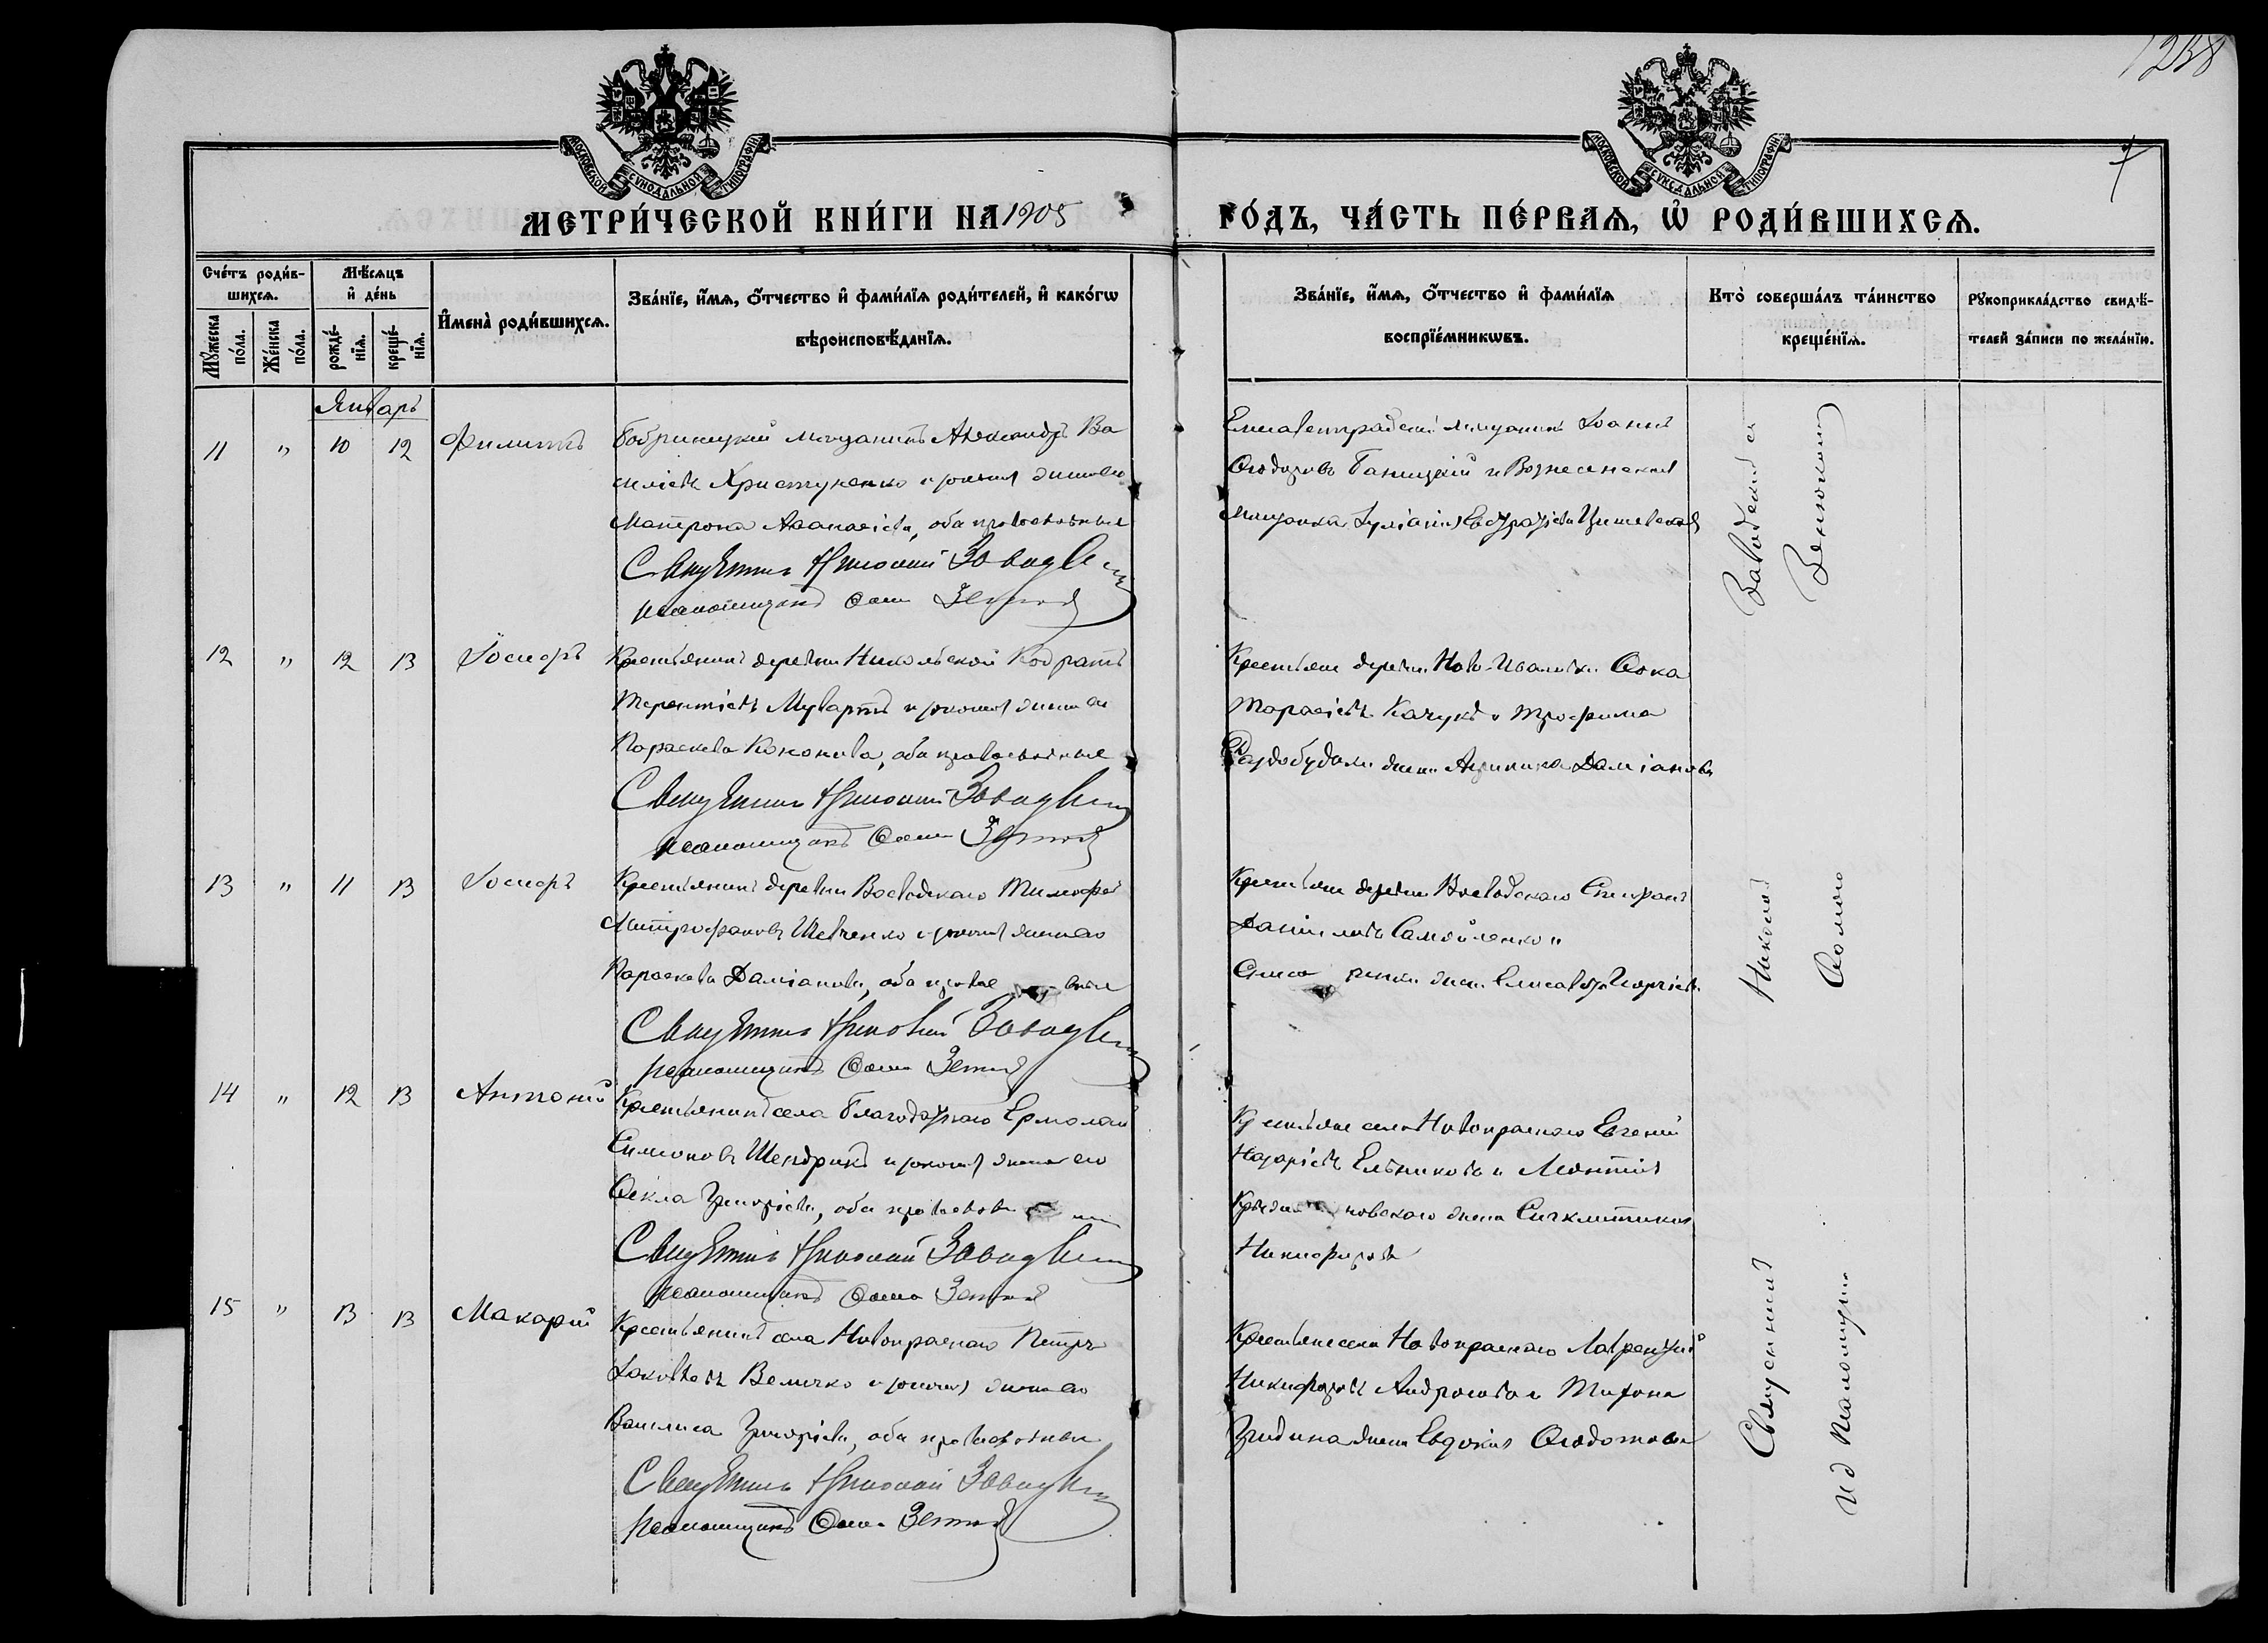 1258
7
МОСКОВСКОЙ СУНОДАЛЬНОЙ ТИПОГРАФІИ
МОСКОВСКОЙ СУНОДАЛЬНОЙ ТИПОГРАФІИ
МЕТРИ́ЧЕСКОЙ КНИ́ГИ НА 1905
ГО́ДЪ, ЧА́СТЬ ПЕ́РВАѦ, Ѡ҆ РОДИ́ВШИХСѦ.
Сче́тъ роди́в-
шихсѧ.
Мꙋ́жеска по́ла.
Же́нска по́ла.
Мѣ́сѧцъ
и҆ де́нь
рожде́-
нїѧ.
креще́-
нїѧ.
И҆мена̀ роди́вшихсѧ.
Зва́нїе, и҆́мѧ, ѻ҆́тчество и҆ фами́лїѧ роди́телей, и҆ како́гѡ
вѣроисповѣ́данїѧ.
Зва́нїе, и҆́мѧ, ѻ҆́тчество и҆ фами́лїѧ
воспрїе́мникѡвъ.
Кто̀ соверша́лъ та́инство
креще́нїѧ.
Рꙋкоприкла́дство свидѣ́-
телей за́писи по жела́нїю.
Январь
11 " 10 12 Филиппъ
Бобринецкій мѣщанинъ Александръ Ва
сильевъ Христученко и законная жена его
Матрона Аѳанасіева, оба православные
Священникъ Николай Заводовскій
псаломщикъ Ѳома Зенюк
Елисаветградскій мѣщанинъ Іоаннъ
Ѳеодоровъ Баницкій и Вознесенская
мѣщанка Іуліанія Евстратіева
12 " 12 13 Іосифъ
Крестьянинъ деревни Никольской Кодратъ
Терентіевъ и законная жена его
Параскева Кононова, оба православные
Священникъ Николай Заводовскій
псаломщикъ Ѳома Зенюк
Крестьяне деревни Ново-Ивановки Ѳока
Тарасіевъ Качукъ и Трофима
жена Агрипина Даміанова
13 " 11 13 Іосифъ
Крестьянинъ деревни Воеводскаго Тимофей
Митрофановъ Шевченко и законная жена его
Параскева Даміанова, оба православные
Священникъ Николай Заводовскій
псаломщикъ Ѳома Зенюк
Крестьяне деревни Воеводскаго Спиридонъ
Даніиловъ Самойленко и
жена Елисавета Георгіева
14 " 12 13 Антоній
Крестьянинъ села Благодатнаго Ермолай
Симеоновъ Шендрикъ и законная жена его
Ѳекла Григоріева, оба православные
Священникъ Николай Заводовскій
псаломщикъ Ѳома Зенюк
Крестьяне села Новокраснаго Евгеній
Назаріевъ Ельниковъ и Леонтія
жена Синклитикія
Никифорова
15 " 13 13 Макарій
Крестьянинъ села Новокраснаго Петръ
Іаковлевъ Величко и законная жена его
Василиса Григоріева, оба православные
Священникъ Николай Заводовскій
псаломщикъ Ѳома Зенюк
Крестьяне села Новокраснаго Лаврентій
Никифоровъ Андросовъ и Тихона
Гридина жена Евдокія Ѳеодотова
Священникъ Николай Заводовскій
И д псаломщика Ѳома Зенюкъ